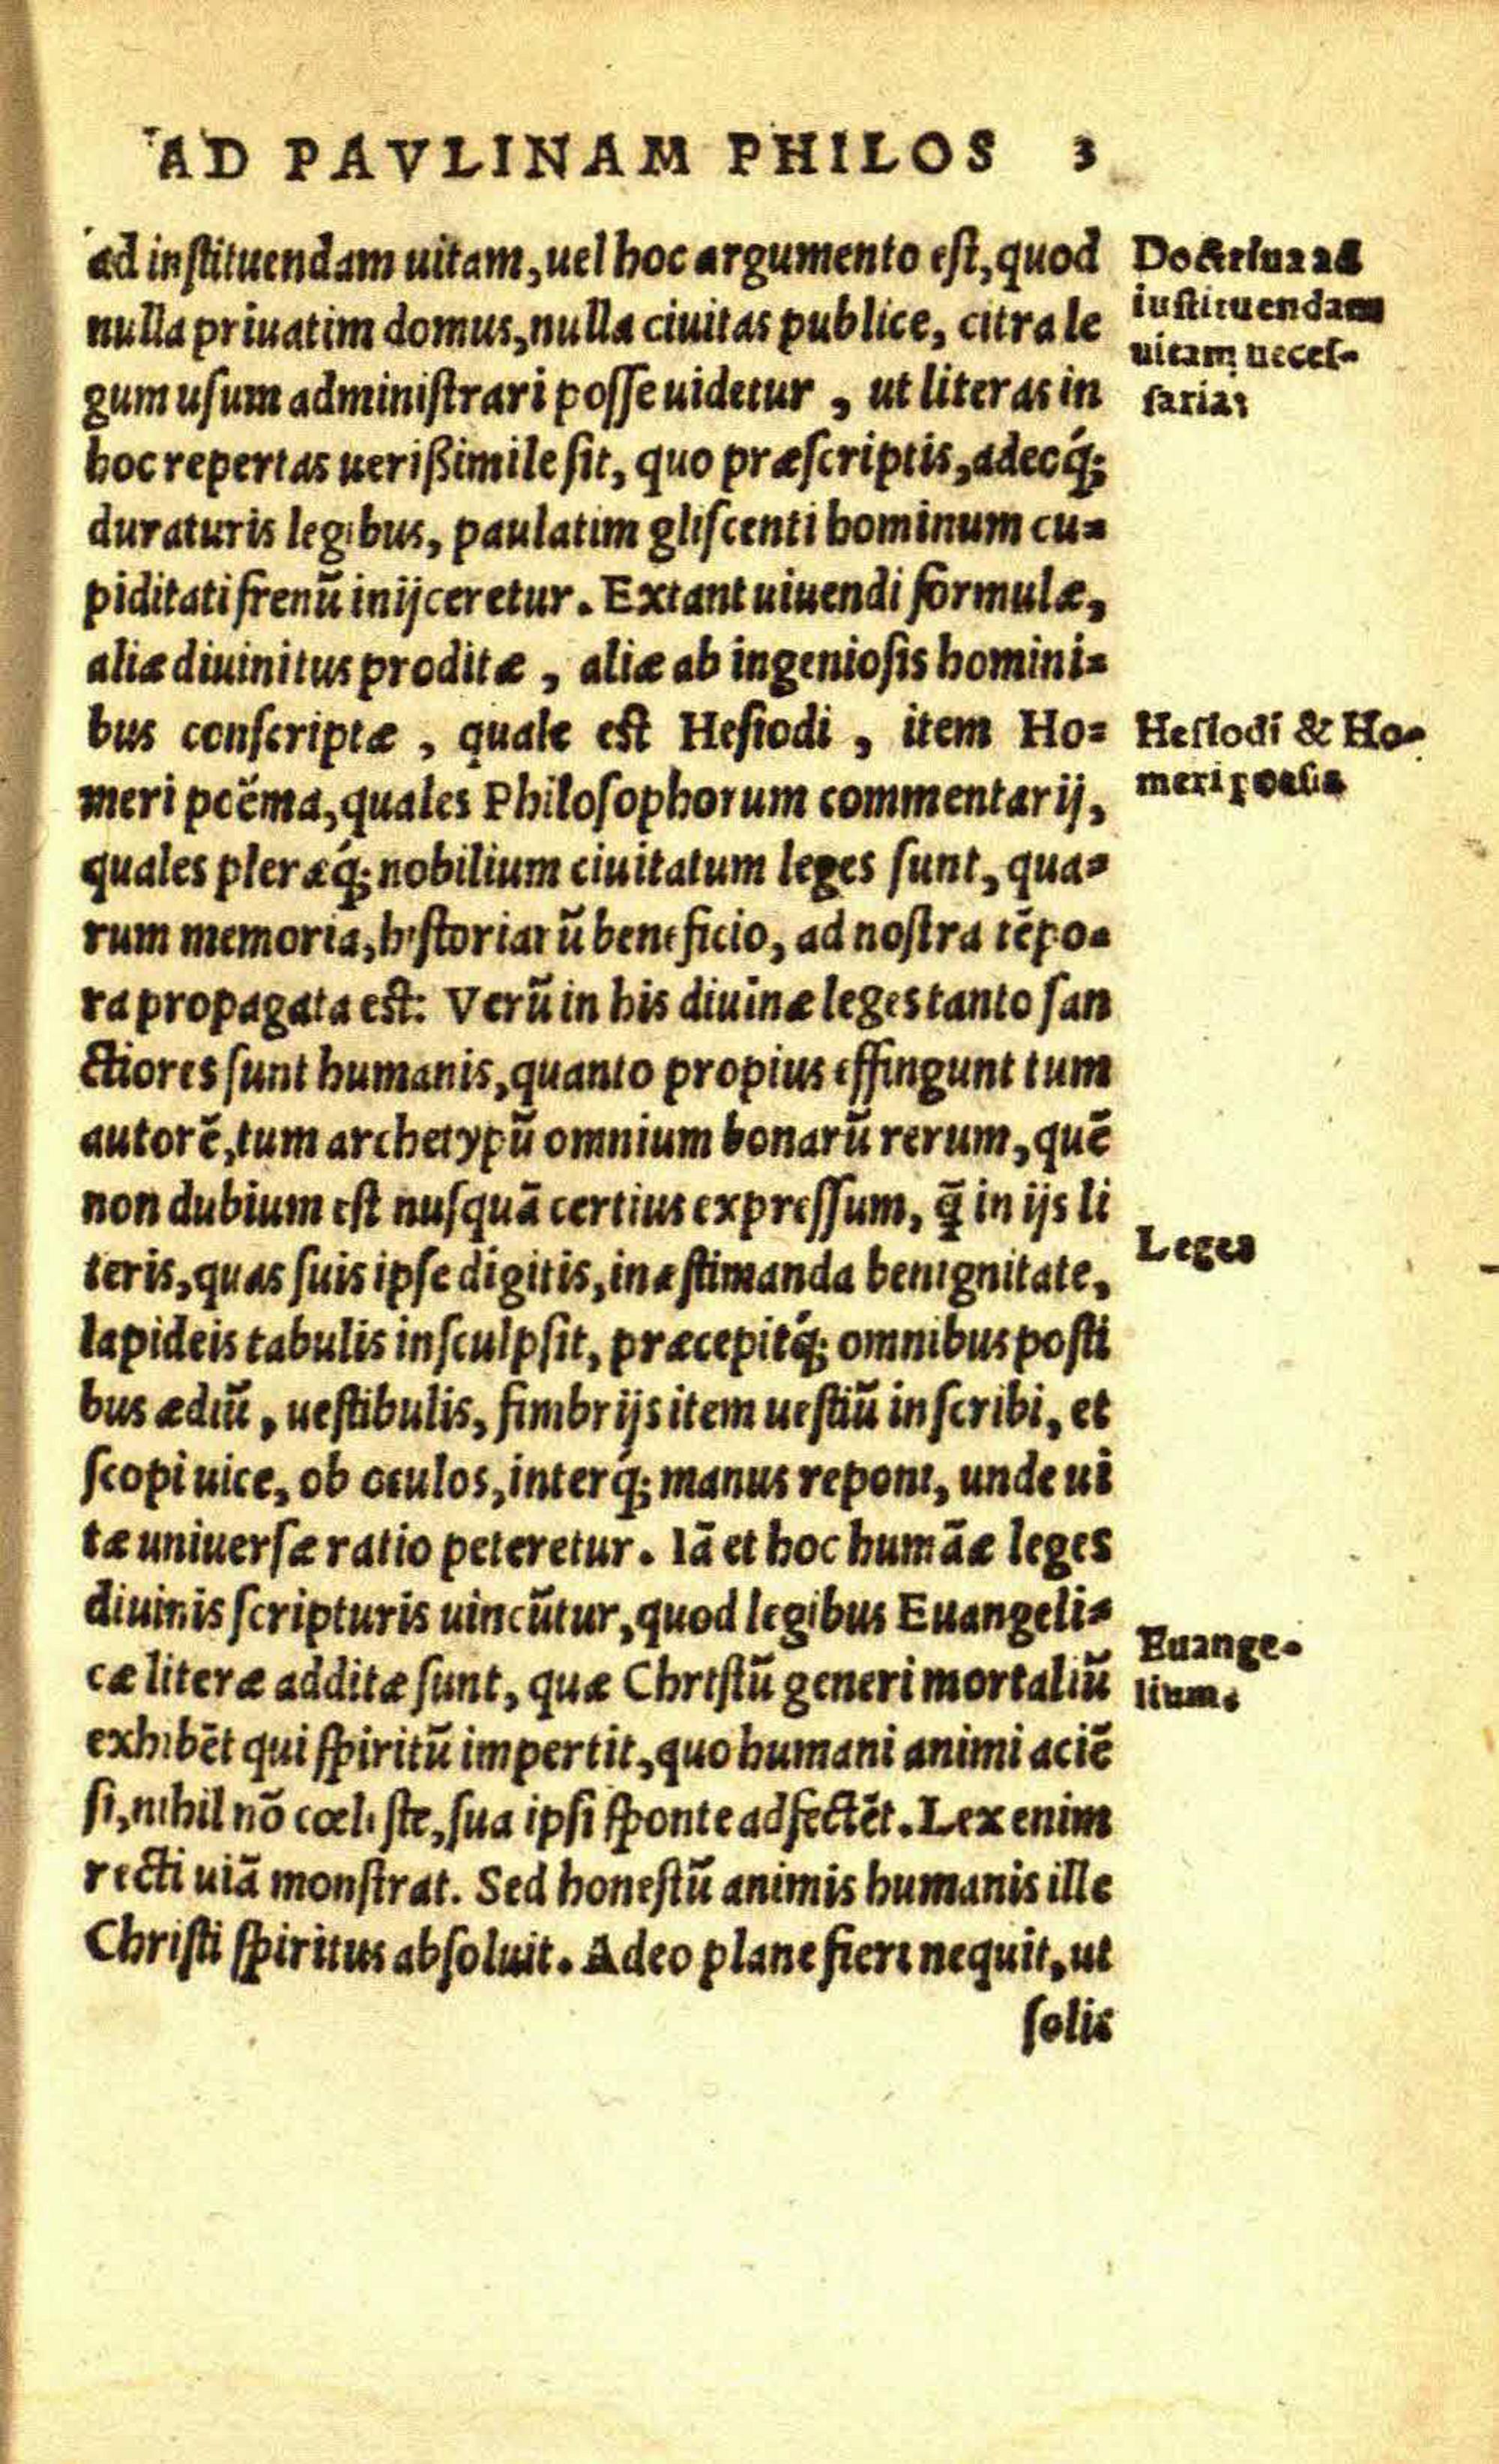 AD PAVLINAM PHILOS 3
ad inſtituendam uitam, uel hoc argumento eſt, quod
nulla priuatim domus, nulla ciuitas publice, citra le
gum uſum adminiſtrari poſſe uidetur, ut literas in
hoc repertas ueriſſimile ſit, quo præſcriptis, adeoq́;
duraturis legibus, paulatim gliſcenti hominum cu=
piditati frenũ inijceretur. Extant uiuendi formulæ,
aliæ diuinitus proditæ, aliæ ab ingenioſis homini=
bus conſcriptæ, quale eſt Heſiodi, item Ho=
meri poëma, quales Philoſophorum commentarij,
quales pleræq́; nobilium ciuitatum leges ſunt, qua=
rum memoria, hiſtoriarũ beneficio, ad noſtra tẽpo=
ra propagata eſt: Verũ in his diuinæ leges tanto ſan
ctiores ſunt humanis, quanto propius effingunt tum
autorẽ, tum archetypũ omnium bonarũ rerum, quẽ
non dubium eſt nuſquã certius expreſſum, q̃ in ijs li
teris, quas ſuis ipſe digitis, inæſtimanda benignitate,
lapideis tabulis inſculpſit, præcepitq́; omnibus poſti
bus ædiũ, ueſtibulis, fimbrijs item ueſtiũ inſcribi, et
ſcopi uice, ob oculos, interq́; manus reponi, unde ui
tæ uniuerſæ ratio peteretur. Iã et hoc humãæ leges
diuinis ſcripturis uincũtur, quod legibus Euangeli=
cæ literæ additæ ſunt, quæ Chriſtũ generi mortaliũ
exhibẽt qui ſpiritũ impertit, quo humani animi aciẽ
ſi, nihil nõ cœleſte, ſua ipſi ſponte adfectẽt. Lex enim
recti uiã monſtrat. Sed honeſtũ animis humanis ille
Chriſti ſpiritus abſoluit. Adeo plane fieri nequit, ut
ſolis
Doctrina ad
inſtituendam
uitam neceſ-
ſaria:
Heſiodi & Ho-
meri poeſis
Leges
Euange-
lium.